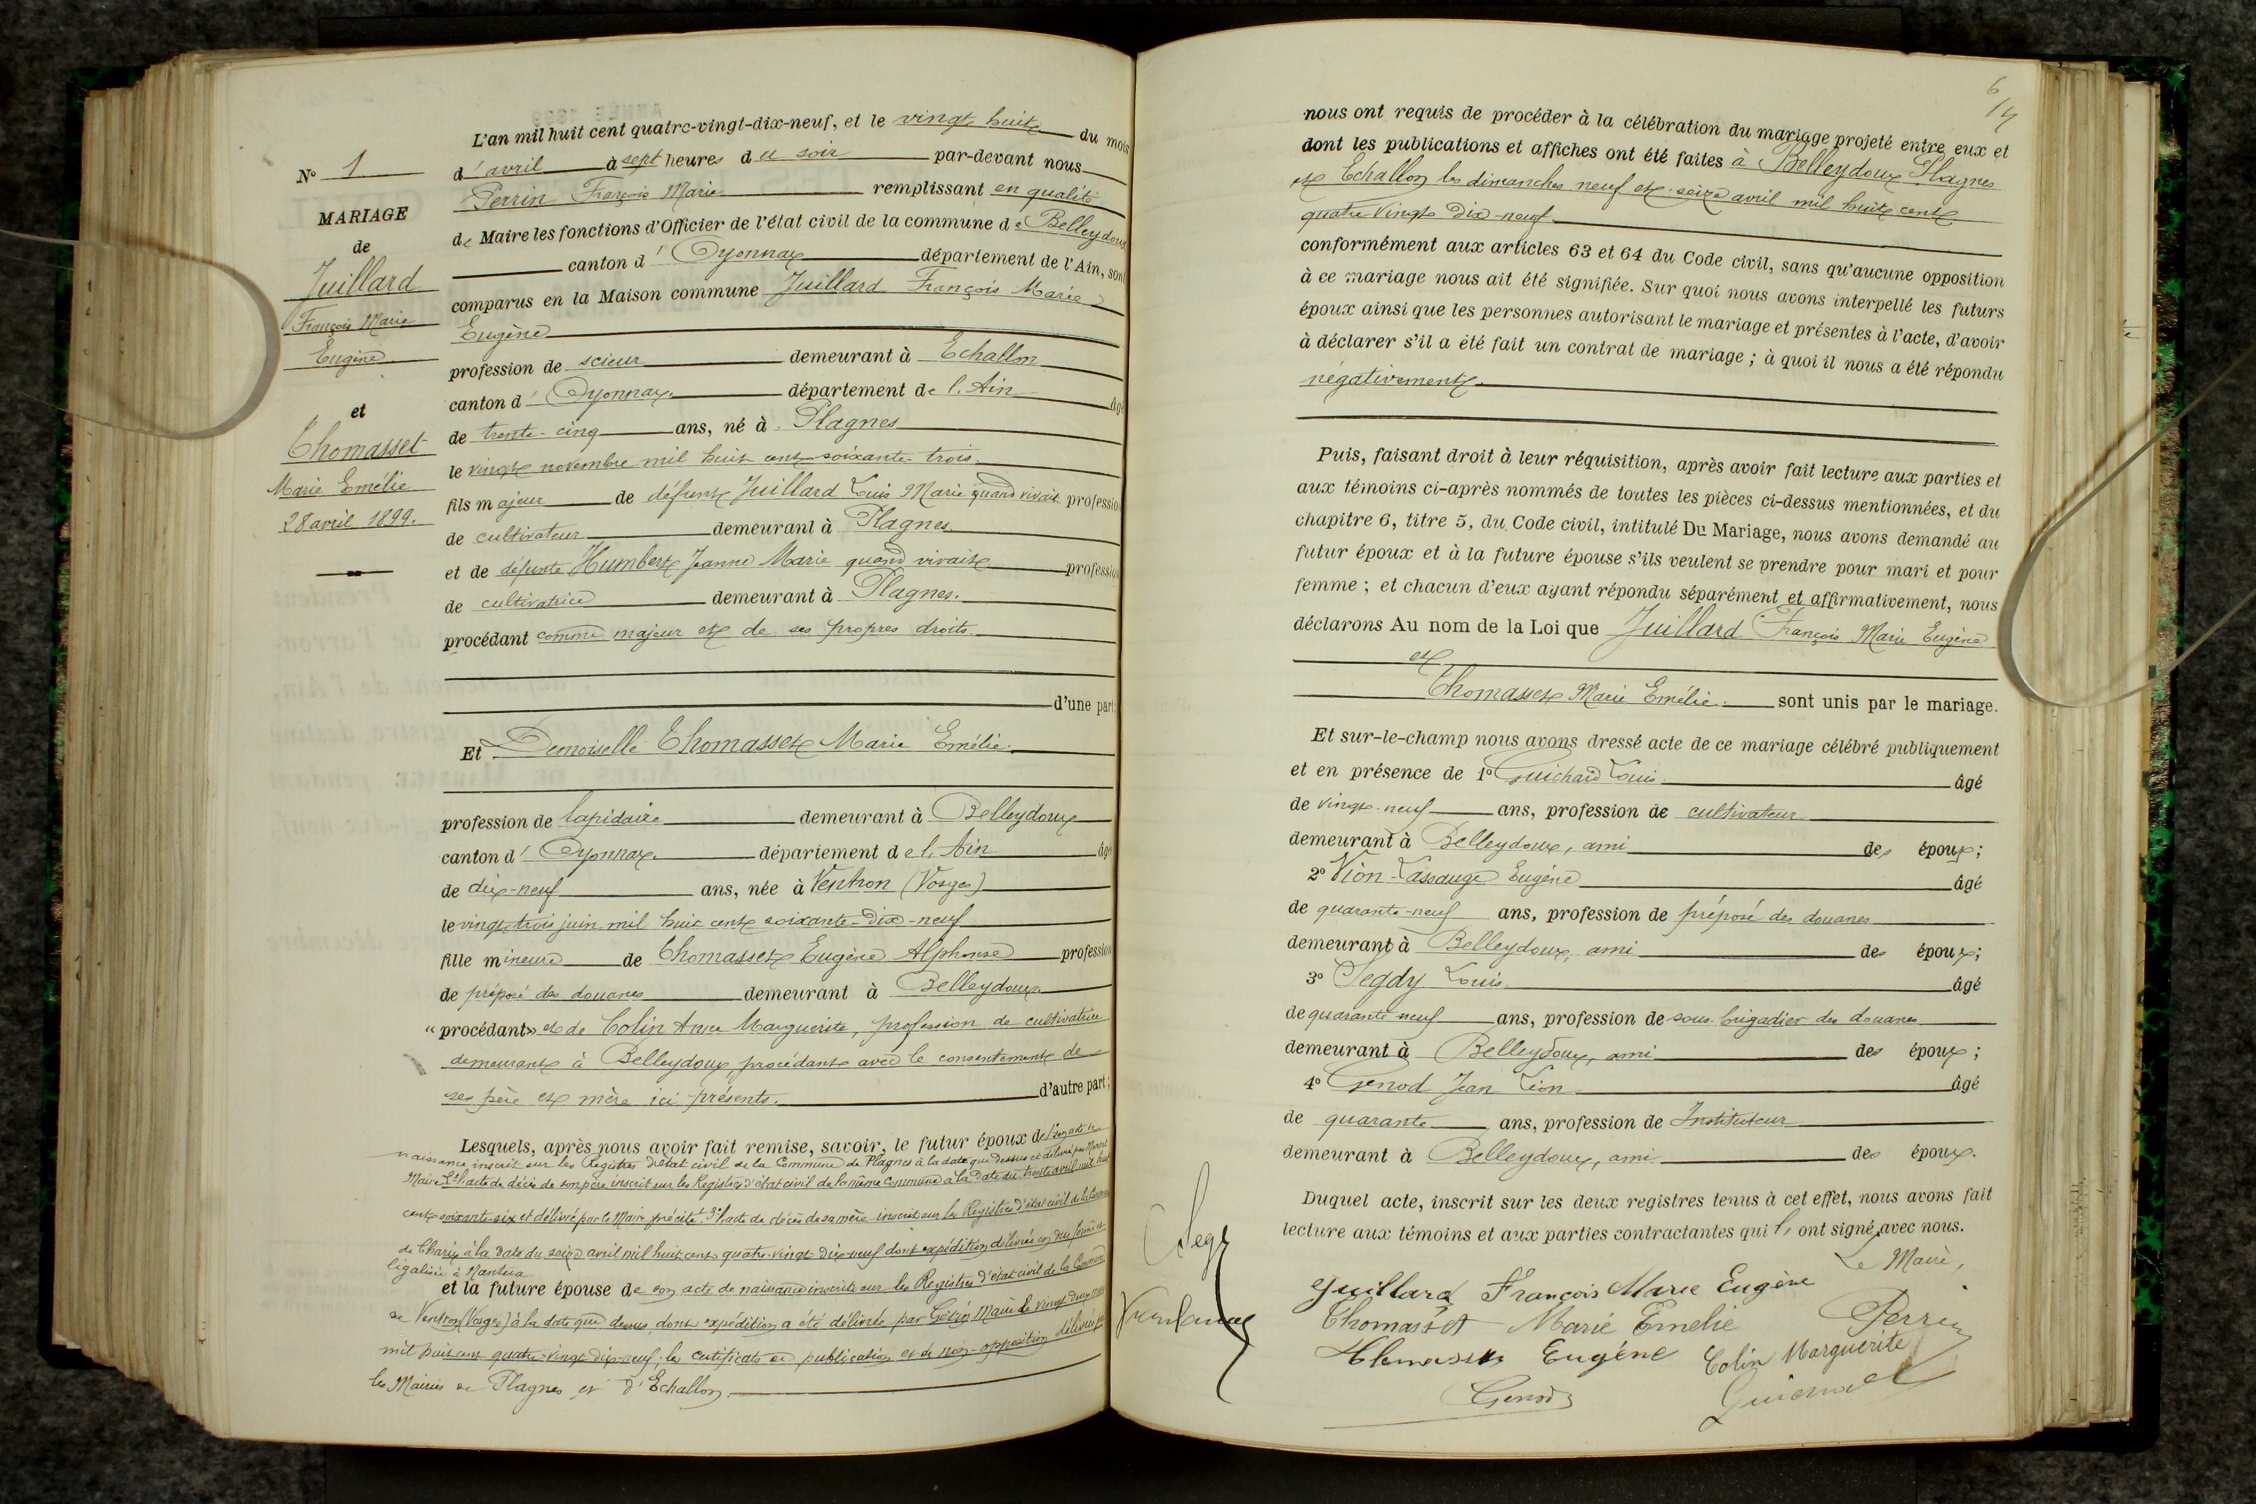 N° 1
MARIAGE
de
Juillard
François Marie
Eugène
et
Thomasset
Marie Emélie
28 avril 1899.
L'an mil huit cent quatre-vingt-dix-neuf, et le vingt huit du mois
d'avril à sept heures du soir par-devant nous
Perrin François Marie remplissant en qualité
de Maire les fonctions d'Officier de l'état civil de la commune de Belleydoux
canton d'Oyonnax département de l'Ain, sont
comparus en la Maison commune Juillard François Marie
Eugène
profession de scieur demeurant à Echallon
canton d'Oyonnax département de l'Ain âgé
de trente-cinq ans, né à Plagnes
le vingt novembre mil huit cent soixante-trois
fils majeur de défunt Juillard Louis Marie quand vivait profession
de cultivateur demeurant à Plagnes
et de défunte Humbert Jeanne Marie quand vivait profession
de cultivatrice demeurant à Plagnes.
procédant comme majeur et de ses propres droits
d'une part;
Et Demoiselle Thomasset Marie Emélie
profession de lapidaire demeurant à Belleydoux
canton d'Oyonnax département de l'Ain âgé
de dix-neuf ans, née à Ventron (Vosges)
le vingt-trois juin mil huit cent soixante-dix-neuf
fille mineure de Thomasset Eugène Alphonse profession
de préposé des douanes demeurant à Belleydoux
"procédant" et de Colin Anne Marguerite, profession de cultivatrice
demeurant à Belleydoux, procédant avec le consentement de
ses père et mère ici présents. d'autre part;
Lesquels, après nous avoir fait remise, savoir, le futur époux de son acte de
naissance inscrit sur les Registres d'état civil de la Commune de Plagnes à la date que dessus et délivré par
Maire 2° l'acte de décès de son père inscrit sur les Registres d'état civil de la même Commune à la date du trente avril mil huit
cent soixante-six et délivré par le Maire précité 3° l'acte de décès de sa mère inscrit sur les Registres d'état civil de la Commune
de Charix à la date du seize avril mil huit cent quatre-vingt dix-neuf dont expédition délivrée en due forme et
légalisée à Nantua
et la future épouse de son acte de naissance inscrit sur les Registres d'état civil de la Commune
de Ventron (Vosges) à la date que dessus, dont expédition a été délivrée par Maire le vingt deux
mil huit cent quatre-vingt dix-neuf; les certificats de publication et de non-opposition délivrés par
les Mairies de Plagnes et d'Echallon
6
14
nous ont requis de procéder à la célébration du mariage projeté entre eux et
dont les publications et affiches ont été faites à Belleydoux Plagnes
et Echallon les dimanches neuf et seize avril mil huit cent
quatre vingt dix-neuf
conformément aux articles 63 et 64 du Code civil, sans qu'aucune opposition
à ce mariage nous ait été signifiée. Sur quoi nous avons interpellé les futurs
époux ainsi que les personnes autorisant le mariage et présentes à l'acte, d'avoir
à déclarer s'il a été fait un contrat de mariage; à quoi il nous a été répondu
négativement.
Puis, faisant droit à leur réquisition, après avoir fait lecture aux parties et
aux témoins ci-après nommés de toutes les pièces ci-dessus mentionnées, et du
chapitre 6, titre 5, du Code civil, intitulé Du Mariage, nous avons demandé au
futur époux et à la future épouse s'ils veulent se prendre pour mari et pour
femme; et chacun d'eux ayant répondu séparément et affirmativement, nous
déclarons Au nom de la Loi que Juillard François Marie Eugène
et
Thomasset Marie Emélie sont unis par le mariage.
Et sur-le-champ nous avons dressé acte de ce mariage célébré publiquement
et en présence de 1° Guichard Louis âgé
de vingt-neuf ans, profession de cultivateur
demeurant à Belleydoux, ami des époux;
2° Vion-Lassauge Eugène âgé
de quarante-neuf ans, profession de préposé des douanes
demeurant à Belleydoux, ami des époux;
3° Segdy Louis âgé
de quarante neuf ans, profession de sous-brigadier des douanes
demeurant à Belleydoux, ami des époux;
4° Genod Jean Léon âgé
de quarante ans, profession de Instituteur
demeurant à Belleydoux, ami des époux.
Duquel acte, inscrit sur les deux registres tenus à cet effet, nous avons fait
lecture aux témoins et aux parties contractantes qui l'ont signé avec nous.
Le Maire,
Juillard François Marie Eugène
Thomasset Marie Emélie Perrin
Thomasset Eugène Colin Marguerite
Genod